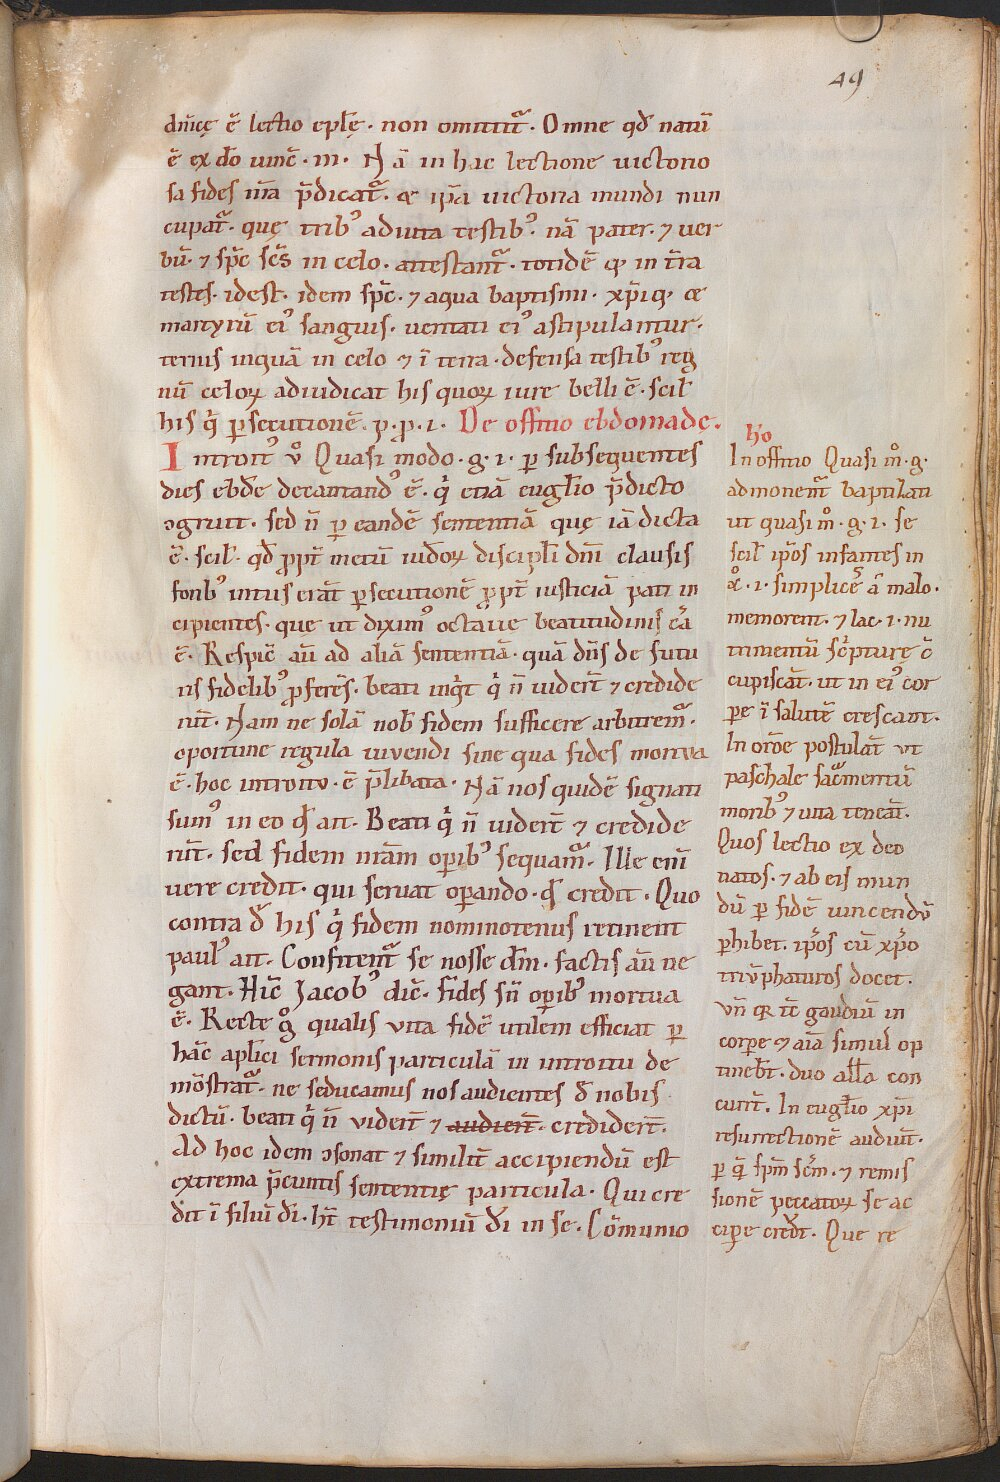 49
dn̄icę ē lectio epłę. non omittit᷑. Omne qđ natū
ē ex dō uinc̄. m. Nā in hac lectione uictorio
sa fides nr̄a p̄dicat᷑. & ip̄a uictoria mundi nun
cupat᷑. quę trib᷒ adiuta testib᷒. nā pater. ⁊ uer
bū. ⁊ sp̄c sc̄s in celo. attestant᷑. totidē q; in t̄ra
testes. idest. idem sp̄c. ⁊ aqua baptismi. xp̄iq; &
martyrū ei᷒ sanguis. ueritati ei᷒ astipulantur.
ternis inquā in celo ⁊ ī terra. defensa testib᷒ reg
nū celoꝝ adiudicat his quoꝝ iure belli ē. scił
his q̇ ꝑsecutionē. p. ꝓ. i. De offitio ebdomade.
Introit᷒ v̊ Quasi modo. g. i. ꝑ subsequentes
dies ebđe decantand᷒ ē. q̇ etiā eugłio p̄dicto
ɔgruit. sed n̄ ꝑ eandē sententiā quę iā dicta
ē. scił. qđ ꝓpt̄ metū iudoꝝ discipłi dn̄i clausis
forib᷒ intus erāt ꝑsecutionē ꝓpt̄ iusticiā pati in
cipientes. quę ut dixim᷒ octauę beatitudinis cā
ē. Respic̄ aū ad aliā sententiā. quā dn̄s de futu
ris fidelib᷒ ꝓferēs. beati inq̇t q̇ n̄ uider̄t ⁊ credide
rūt. Nam ne solā nob̄ fidem sufficere arbitrem᷑.
oportune regula uiuendi sine qua fides mortva
ē. hoc introitv. ē p̄libata. Nā nos quidē signati
sum᷒ in eo qđ ait. Beati q̇ n̄ vider̄t ⁊ credide
rūt. sed fidem nr̄am oꝑib᷒ sequam᷑. Ille enī
vere credit. qui seruat oꝑando. qđ credit. Quo
contra đ his q̇ fidem nominotenus retinent
paul᷒ ait. Confitent᷑ se nosse dm̄. factis aū ne
gant. Hīc Jacob᷒ dic̄. fides sn̄ oꝑib᷒ mortua
ē. Recte g̊ qualis vita fidē utilem efficiat ꝑ
hāc apłici sermonis particulā in introitu de
mōstrat᷑. ne seducamus nos audientes đ nobis
dictū. beati q̇ n̄ vider̄t ⁊ audier̄t. crediđert̄.
Ad hoc idem ɔsonat ⁊ similit̄ accipiendū est
extrema p̄cuntis sententię particula. Qui cre
dit ī filiū dī. ht̄ testimoniū dī in se. Cōmunio
In offitio Quasi m̊. g.
admonent᷑ baptizati
ut quasi m̊. g. i. se
scił ip̄os infantes in
x̊. i. simplicēs a malo.
memorent. ⁊ lac. i. nu
trimentū sc̄pture c̄
cupiscāt. ut in ei᷒ cor
ꝑe ī salutē crescant.
In orōe postulāt vt
paschale sac̄mentū
morib᷒ ⁊ uita teneāt.
Quos lectio ex deo
natos. ⁊ ab eis mun
dū ꝑ fidē uincendū
ꝑhibet. ip̄os cū xp̄o
triūphaturos docet.
Vn̄ qꝛ tc̄ gaudiū in
corꝑe ⁊ aīa simul op
tinebt̄. duo ałła con
curr̄t. In eugłio xp̄i
resurrectionē audiūt.
ꝑ q̄ sp̄m sc̄m. ⁊ remis
sionē peccatoꝝ se ac
ciꝑe credt̄. Que re